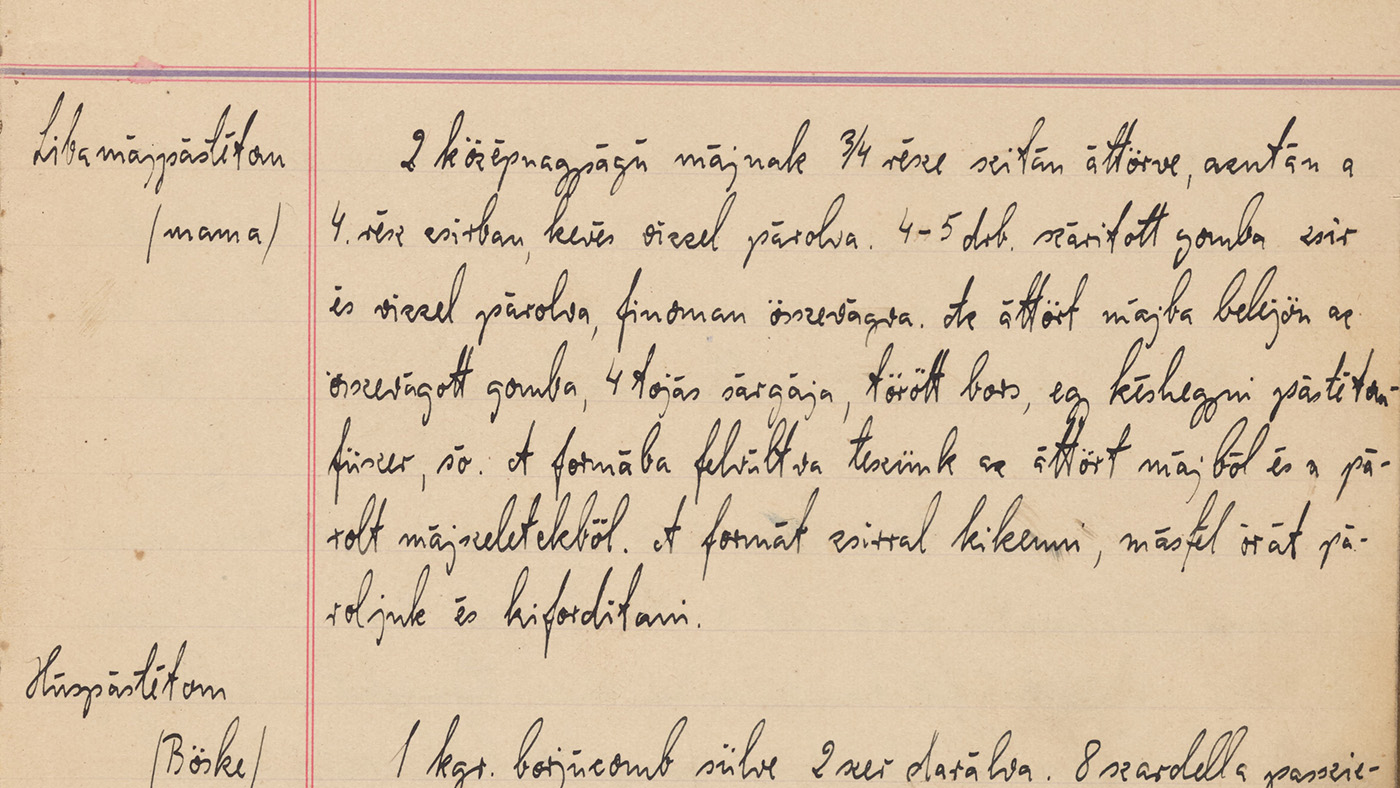 Libamájpástétom
(mama)
2 középnagyságú májnak 3/4 része szitán áttörve, azután a
4. rész zsirban, kevés vizzel párolva. 4-5 drb. száritott gomba zsir
és vizzel párolva, finoman összevágva. Az áttört májba belejön az
összevágott gomba, 4 tojás sárgája, törött bors, egy késhegyni pástétom-
füszer, só. A formába felváltva teszünk az áttört májból és a pá-
rolt májszeletekböl. A formát zsirral kikenni, másfél órát pá-
roljuk és kiforditani.
Húspástétom
(Böske)
1 kgr. borjúcomb sülve 2szer darálva. 8 szardella passzi-